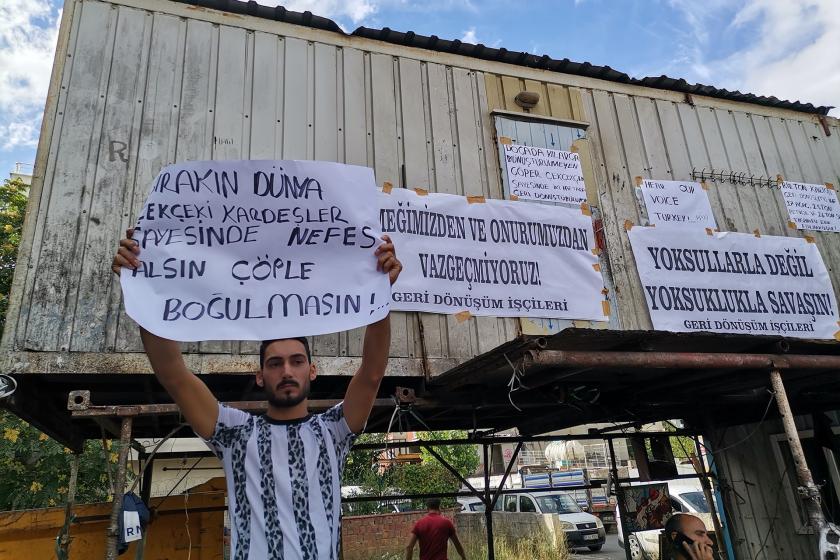 BIRAKIN DÜNYA
ÇEKÇEKİ KARDEŞLER
SAYESİNDE NEFES
ALSIN ÇÖPLE
BOĞULMASIN!...
EMEĞİMİZDEN VE ONURUMUZDAN
VAZGEÇMİYORUZ!
GERİ DÖNÜŞÜM İŞÇİLERİ
DOĞADA
ÇÖPLER ÇEKÇEKÇİ
SAYESİNDE
GERİ DÖNÜŞTÜRÜLÜR
HEAR OUR
VOICE
TURKEY!
YOKSULLARLA DEĞİL
YOKSUKLUKLA SAVAŞIN!
GERİ DÖNÜŞÜM İŞÇİLERİ
R
R N